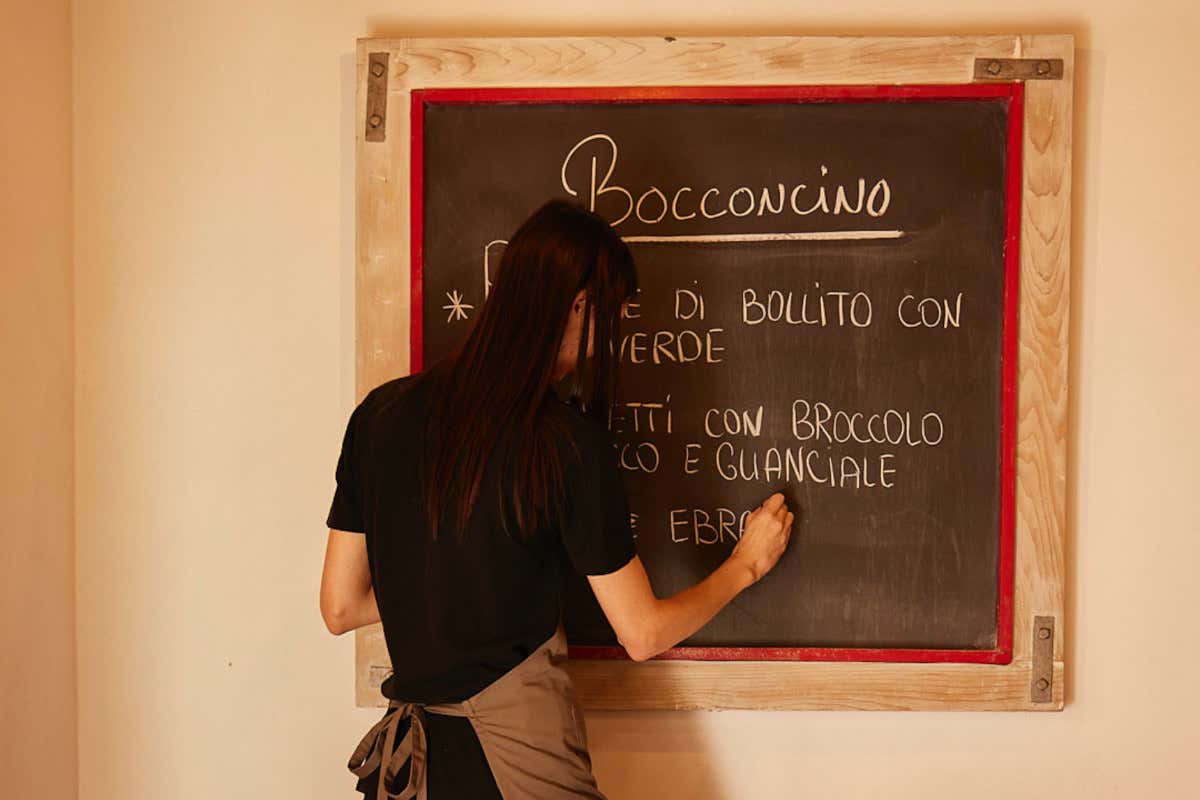 Bocconcino
* DI BOLLITO CON
VERDE
CON BROCCOLO
E GUANCIALE